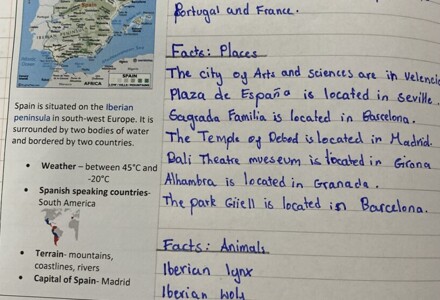 Spain
AFRICA
SPAIN
Spain is situated on the Iberian
peninsula in south-west Europe. It is
surrounded by two bodies of water
and bordered by two countries.
Weather – between 45°C and
-20°C
Spanish speaking countries-
South America
Terrain- mountains,
coastlines, rivers
Capital of Spain- Madrid
Portugal and France.
Facts: Places
The city of Arts and sciences are in Velencia
Plaza de España is located in seville.
Sagrada Familia is located in Barcelona.
The Temple of Debod is located in Madrid.
Dali Theatre museum is located in Girona
Alhambra is located in Granada.
The park Güell is located in Barcelona.
Facts: Animals
Iberian lynx
Iberian wolf